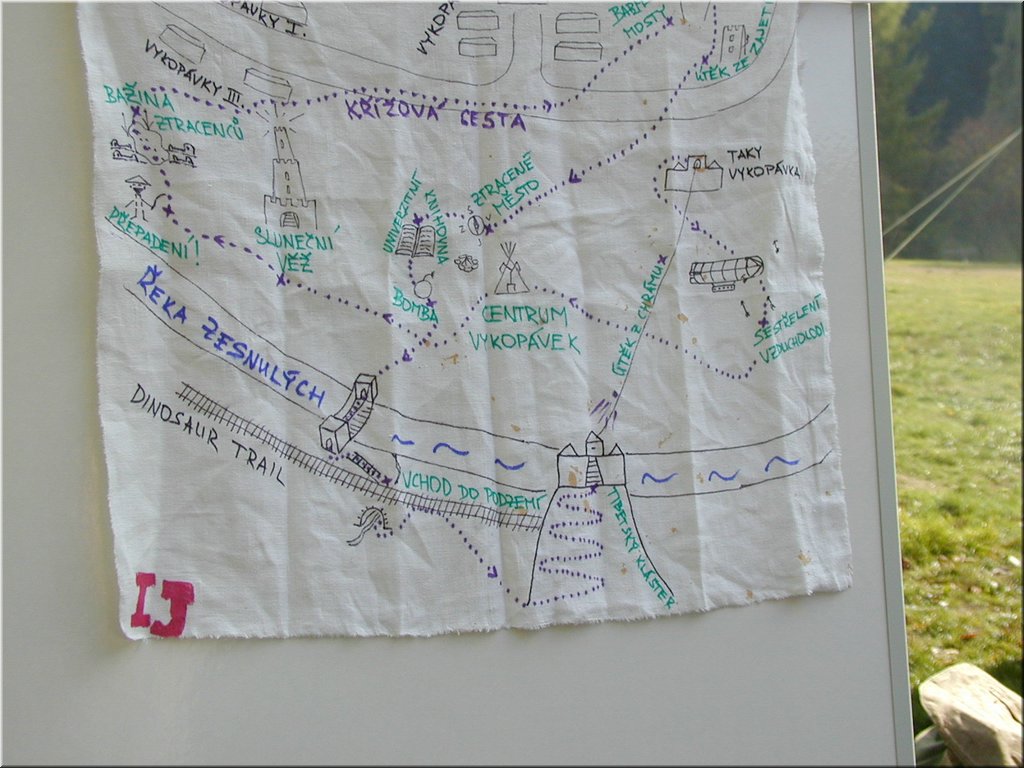 VYKOPÁVKY III.
BABY
MOSTY
ÚTĚK ZE ZAJETÍ
BAŽINA
ZTRACENCŮ
KŘÍŽOVÁ CESTA
TAKY
VYKOPÁVKA
ZTRACENÉ
MĚSTO
UNIVERZITNÍ
KNIHOVNA
PŘEPADENÍ!
SLUNEČNÍ
VĚŽ
BOMBA
CENTRUM
VYKOPÁVEK
ÚTĚK Z CHRÁMU
SESTŘELENÍ
VZDUCHOLODI
ŘEKA ZESNULÝCH
DINOSAUR TRAIL
VCHOD DO PODZEMÍ
TIBETSKÝ KLÁŠTER
IJ